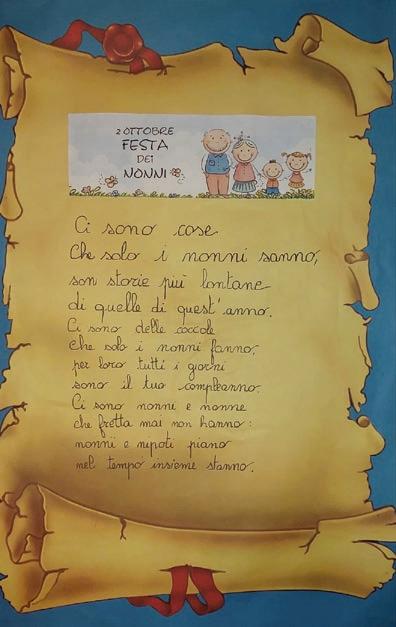 2 OTTOBRE
FESTA
DEI
NONNI
Ci sono cose
Che solo i nonni sanno,
son storie più lontane
di quelle di quest'anno.
Ci sono delle coccole
che solo i nonni fanno,
per loro tutti i giorni
sono il tuo compleanno.
Ci sono nonni e nonne
che fretta mai non hanno:
nonni e nipoti piano
nel tempo insieme stanno.